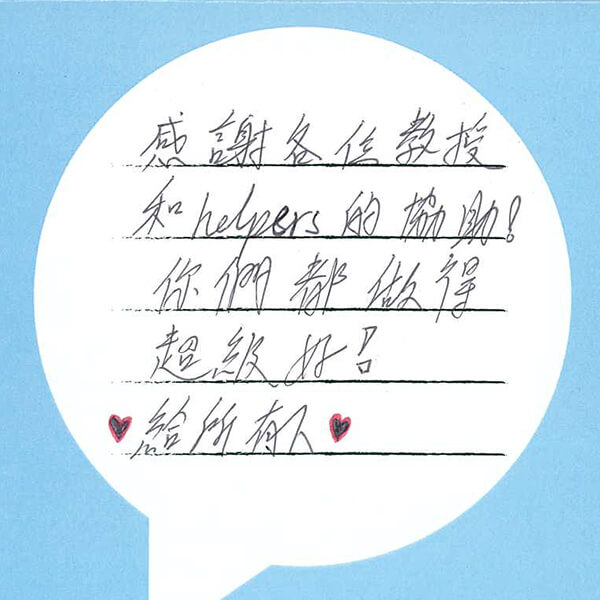 感謝各位教授
和helpers的協助!
你們都做得
超級好!
給所有人